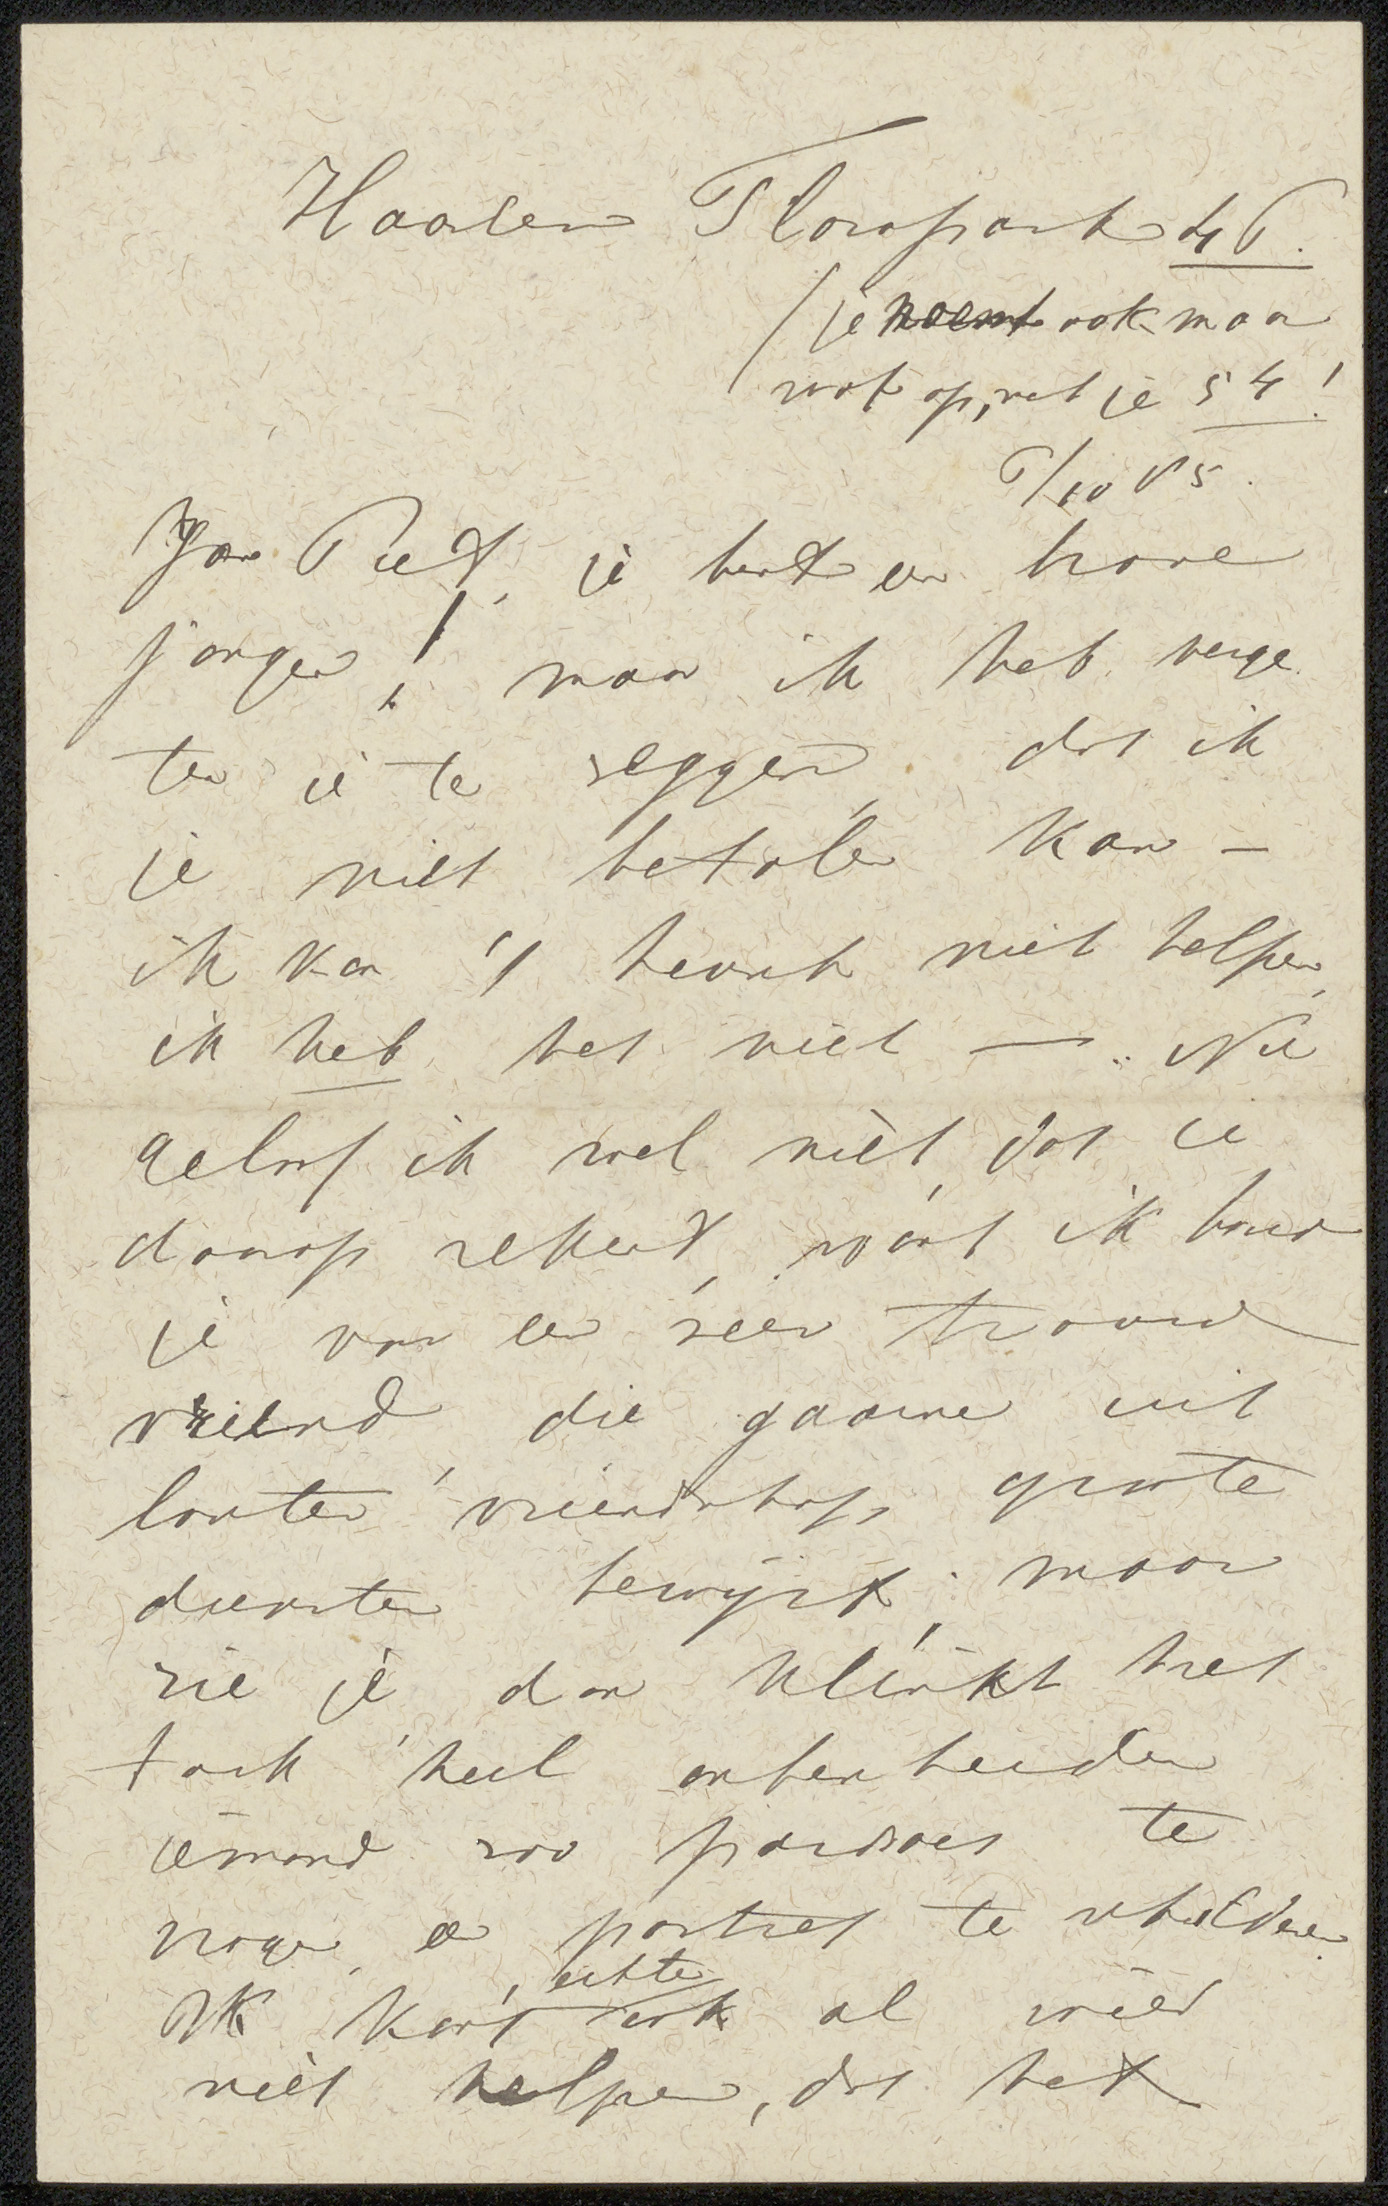 Haarlem Florapark 46.
(je noemt ook maar
wat op, net je 54!
6/10 85.
Ja Piet, je bent een brave
jongen! maar ik heb verge
ten je te zeggen, dat ik
je niet betalen kan –
ik kan 't heusch niet helpen,
ik heb het niet — Nu
geloof ik wel niet, dat je
daarop rekent, want ik houd
je voor een zeer trouwe
vriend die gaarne uit
louter vriendschap groote
diensten bewijst, maar
zie je dan klinkt het
toch heel onbescheiden
iemand zoo pardoes te
vragen een portret te schilderen
Ik kan 't echter ook al weer
niet helpen, dat het